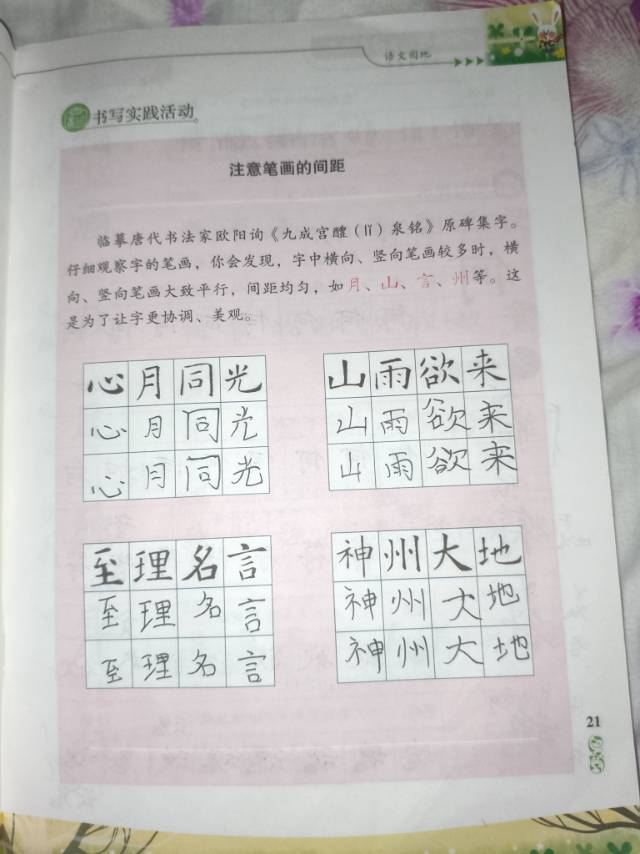 语文园地
书写实践活动
注意笔画的间距
临摹唐代书法家欧阳询《九成宫醴（lǐ）泉铭》原碑集字。
仔细观察字的笔画，你会发现，字中横向、竖向笔画较多时，横
向、竖向笔画大致平行，间距均匀，如月、山、言、州等。这
是为了让字更协调、美观。
心月同光
心月同光
心月同光
山雨欲来
山雨欲来
山雨欲来
至理名言
至理名言
至理名言
神州大地
神州大地
神州大地
21